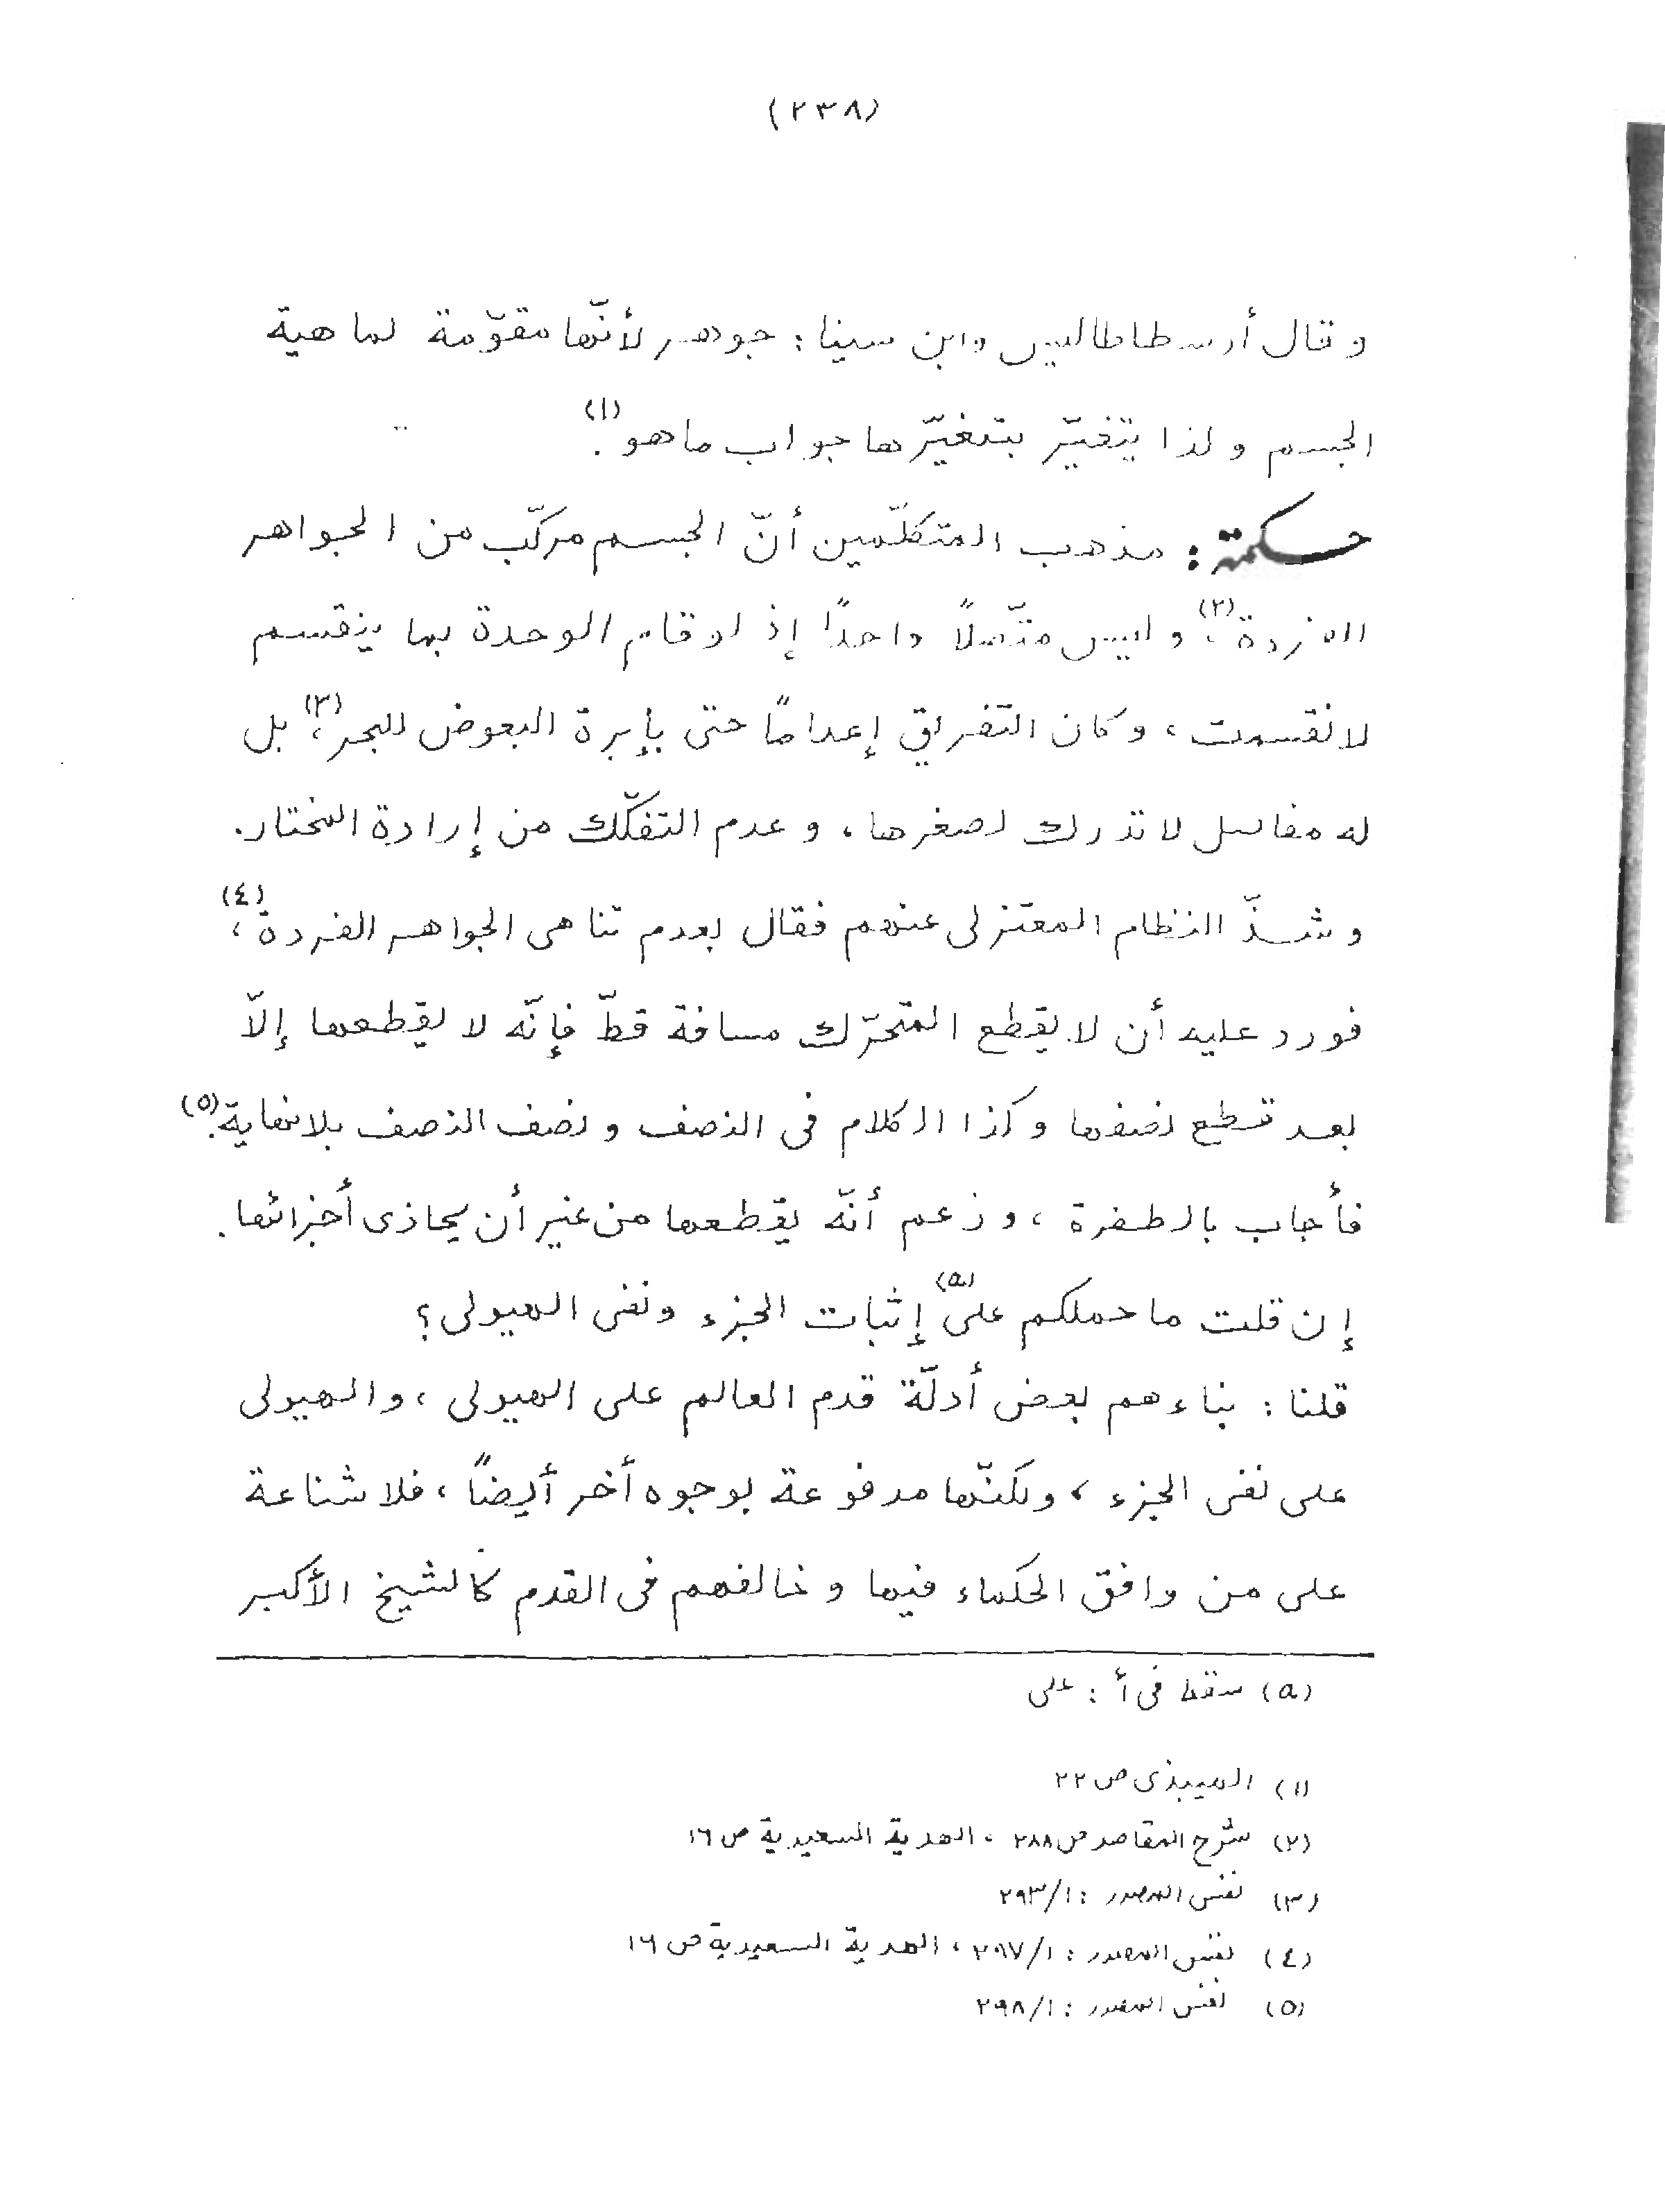 (٢٣٨)
وقال أرسطاطاليس وابن سينا : جوهر لأنّها مقوّمة لماهية
الجسم ولذا يتغيّر بتغيّرها جواب ماهو (١).
حكمة : مذهب المتكلّمين أنّ الجسم مركّب من الجواهر
الفردة (٢)، وليس متّصلاً واحدًا إذ لو قام الوحدة بها ينقسم
لانقسمت ، وكان التفريق إعدامًا حتى بإبرة البعوض للبحر (٣)، بل
له مفاصل لا تدرك لصغرها ، وعدم التفكّك من إرادة المختار.
وشذّ النظام المعتزلى عنهم فقال بعدم تناهى الجواهر الفردة (٤)،
فورد عليه أن لا يقطع المتحرّك مسافة قطّ فإنّه لا يقطعها إلاّ
بعد قطع نصفها وكذا الكلام فى النصف ونصف النصف بلانهاية (٥).
فأجاب بالطفرة ، وزعم أنّه يقطعها من غير أن يحاذى أجزائها .
إن قلت ما حملكم على (a) إثبات الجزء ونفى الهيولى ؟
قلنا : بناءهم بعض أدلّة قدم العالم على الهيولى ، والهيولى
على نفى الجزء ، ولكنّها مدفوعة بوجوه أخر أيضًا ، فلا شناعة
على من وافق الحكماء فيها وخالفهم فى القدم كالشيخ الأكبر
(a) سقط فى أ : على
(١) الميبذى ص ٢٢
(٢) شرح المقاصد ص ٢٨٨ ، الهدية السعيدية ص ١٦
(٣) نفس المصدر : ١/٢٩٣
(٤) نفس المصدر : ١/٢٩٧ ، الهدية السعيدية ص ١٦
(٥) نفس المصدر : ١/٢٩٨